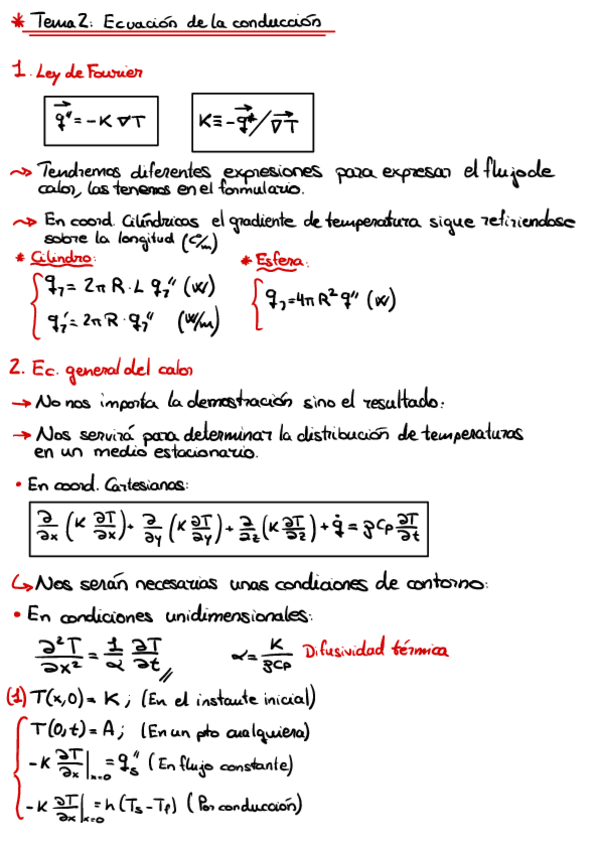 * Tema 2: Ecuación de la conducción
1. Ley de Fourier
q⃗" = -K ∇T
K ≡ -q⃗"/∇⃗T
→ Tendremos diferentes expresiones para expresar el flujo de
calor, las tenemos en el formulario.
→ En coord. Cilíndricas el gradiente de temperatura sigue refiriendose
sobre la longitud (ºC/m)
* Cilindro:
q_r = 2π R·L q_r" (W)
q_r' = 2π R·q_r" (W/m)
* Esfera:
q_r = 4π R² q" (W)
2. Ec. general del calor
→ No nos importa la demostración sino el resultado:
→ Nos servirá para determinar la distribución de temperaturas
en un medio estacionario.
• En coord. Cartesianas:
∂/∂x (K ∂T/∂x) + ∂/∂y (K ∂T/∂y) + ∂/∂z (K ∂T/∂z) + q̇ = ρ Cp ∂T/∂t
↪ Nos serán necesarias unas condiciones de contorno:
• En condiciones unidimensionales:
∂²T/∂x² = 1/α ∂T/∂t // α = K/ρCp Difusividad térmica
(1) T(x,0) = K ; (En el instante inicial)
T(0,t) = A ; (En un pto cualquiera)
-K ∂T/∂x|x=0 = q_s" (En flujo constante)
-K ∂T/∂x|x=0 = h (Ts - Tf) (Por conducción)